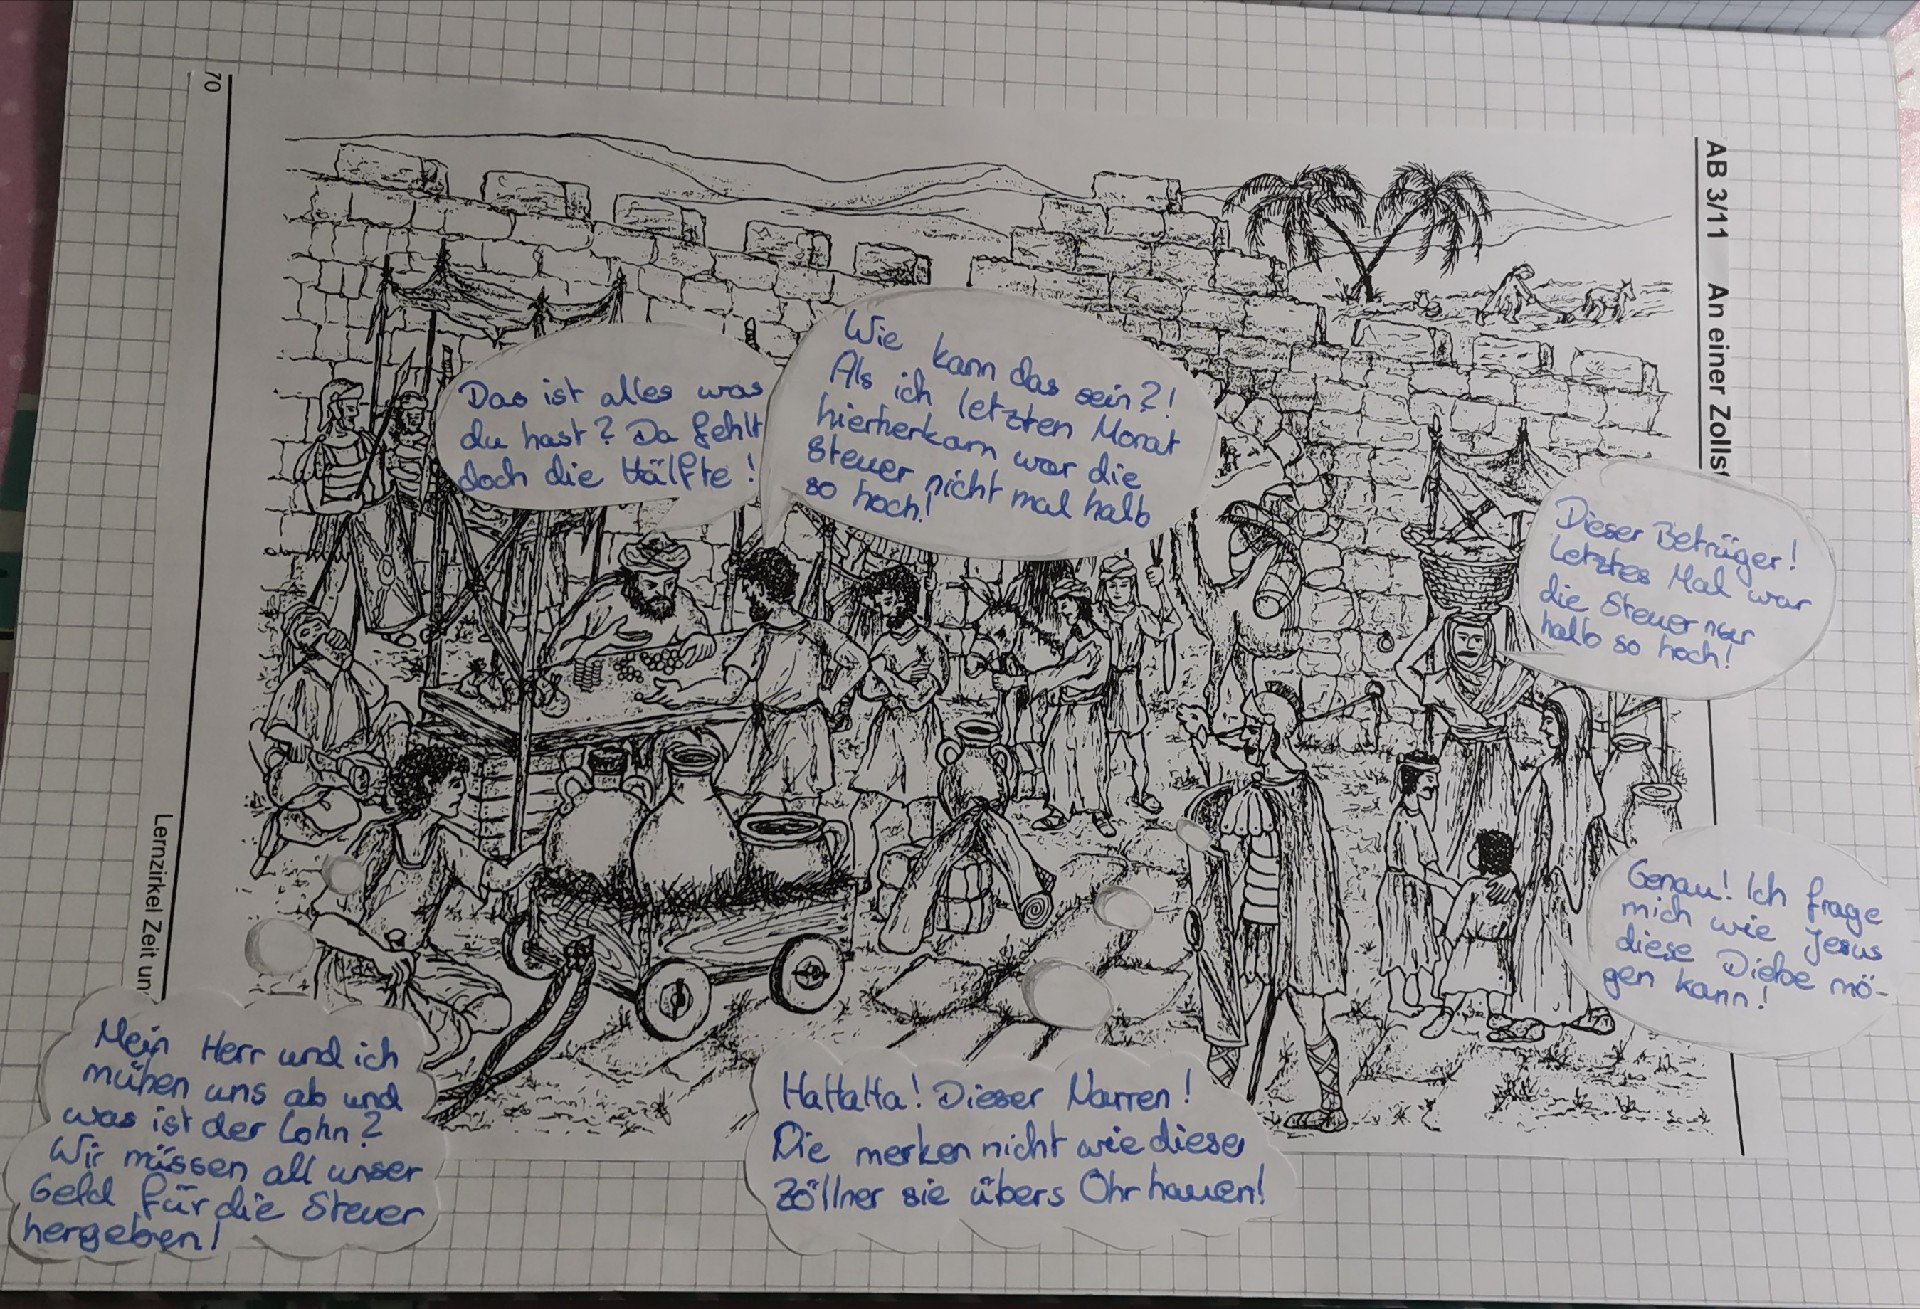 70
AB 3/11 An einer Zolls
Das ist alles was
du hast? Da fehlt
doch die Hälfte!
Wie kann das sein?!
Als ich letzten Monat
hierherkam war die
Steuer nicht mal halb
so hoch!
Dieser Betrüger!
Letztes Mal war
die Steuer nur
halb so hoch!
Genau! Ich frage
mich wie Jesus
diese Diebe mö-
gen kann!
Lernzirkel Zeit un
Mein Herr und ich
mühen uns ab und
was ist der Lohn?
Wir müssen all unser
Geld für die Steuer
hergeben!
HaHaHa! Dieser Narren!
Die merken nicht wie diese
Zöllner sie übers Ohr hauen!